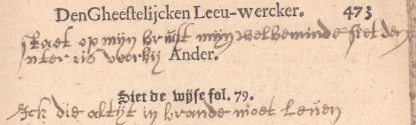 Den Gheestelijcken Leeu-wercker. 473
staet op mijn bruijt mijn welbeminde siet den
winter is voorbij Ander.
Siet de wijse fol. 79.
Ick die altijt in brande moet leven